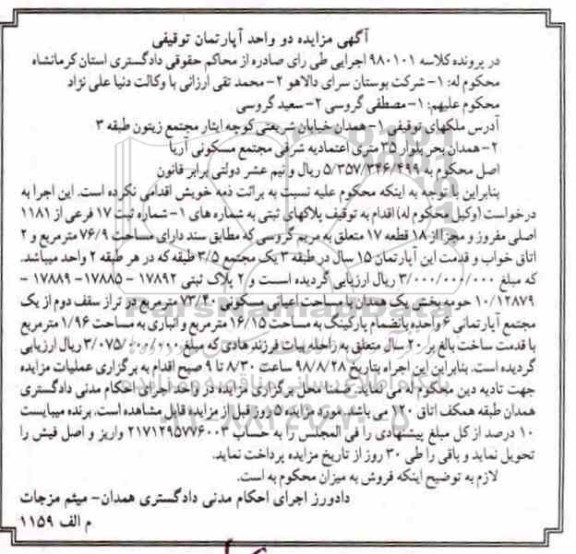 آگهی مزایده دو واحد آپارتمان توقیفی
در پرونده کلاسه ۹۸۰۱۰۱ اجرایی طی رای صادره از محاکم حقوقی دادگستری استان کرمانشاه
محکوم له: ۱- شرکت بوستان سرای دالاهو ۲- محمد تقی ارزانی با وکالت دنیا علی نژاد
محکوم علیهم: ۱- مصطفی گروسی ۲- سعید گروسی
آدرس ملکهای توقیفی ۱- همدان خیابان شریعتی کوچه ایثار مجتمع زیتون طبقه ۳
۲- همدان بحر بلوار ۳۵ متری اعتمادیه شرقی مجتمع مسکونی آریا
اصل محکوم به ۵/۳۵۷/۳۴۶/۴۹۹ ریال و نیم عشر دولتی برابر قانون
بنابراین با توجه به اینکه محکوم علیه نسبت به برائت ذمه خویش اقدامی نکرده است. این اجرا به
درخواست (وکیل محکوم له) اقدام به توقیف پلاکهای ثبتی به شماره های ۱- شماره ثبت ۱۷ فرعی از ۱۱۸۱
اصلی مفروز و مجزا از ۱۸ قطعه ۱۷ متعلق به مریم گروسی که مطابق سند دارای مساحت ۷۶/۹ مترمربع و ۲
اتاق خواب و قدمت این آپارتمان ۱۵ سال در طبقه ۳ یک مجتمع ۳/۵ طبقه که در هر طبقه ۲ واحد میباشد.
که مبلغ ۳/۰۰۰/۰۰۰/۰۰۰ ریال ارزیابی گردیده است و ۲ پلاک ثبتی ۱۷۸۹۲ -۱۷۸۸۵ - ۱۷۸۸۹ -
۱۰/۱۲۸۷۹ حومه بخش یک همدان با مساحت اعیانی مسکونی ۷۳/۴۰ مترمربع در تراز سقف دوم از یک
مجتمع آپارتمانی ۶ واحده بانضمام پارکینگ به مساحت ۱۶/۱۵ مترمربع و انباری به مساحت ۱/۹۶ مترمربع
با قدمت ساخت بالغ بر ۲۰ سال متعلق به راحله بیات فرزند هادی که مبلغ ۳/۰۷۵/۰۰۰/۰۰۰ ریال ارزیابی
گردیده است. بنابراین این اجراء بتاریخ ۹۸/۸/۲۸ ساعت ۸/۳۰ تا ۹ صبح اقدام به برگزاری عملیات مزایده
جهت تادیه دین محکوم له می نماید. ضمنا محل برگزاری مزایده در واحد اجرای احکام مدنی دادگستری
همدان طبقه همکف اتاق ۱۲۰ می باشد. مورد مزایده ۵ روز قبل از مزایده قابل مشاهده است. برنده میبایست
۱۰ درصد از کل مبلغ پیشنهادی را فی المجلس را به حساب ۲۱۷۱۲۹۵۷۷۶۰۰۳ واریز و اصل فیش را
تحویل نماید و باقی را طی ۳۰ روز از تاریخ مزایده پرداخت نماید.
لازم به توضیح اینکه فروش به میزان محکوم به است.
دادورز اجرای احکام مدنی دادگستری همدان- میثم مزجات
م الف ۱۱۵۹